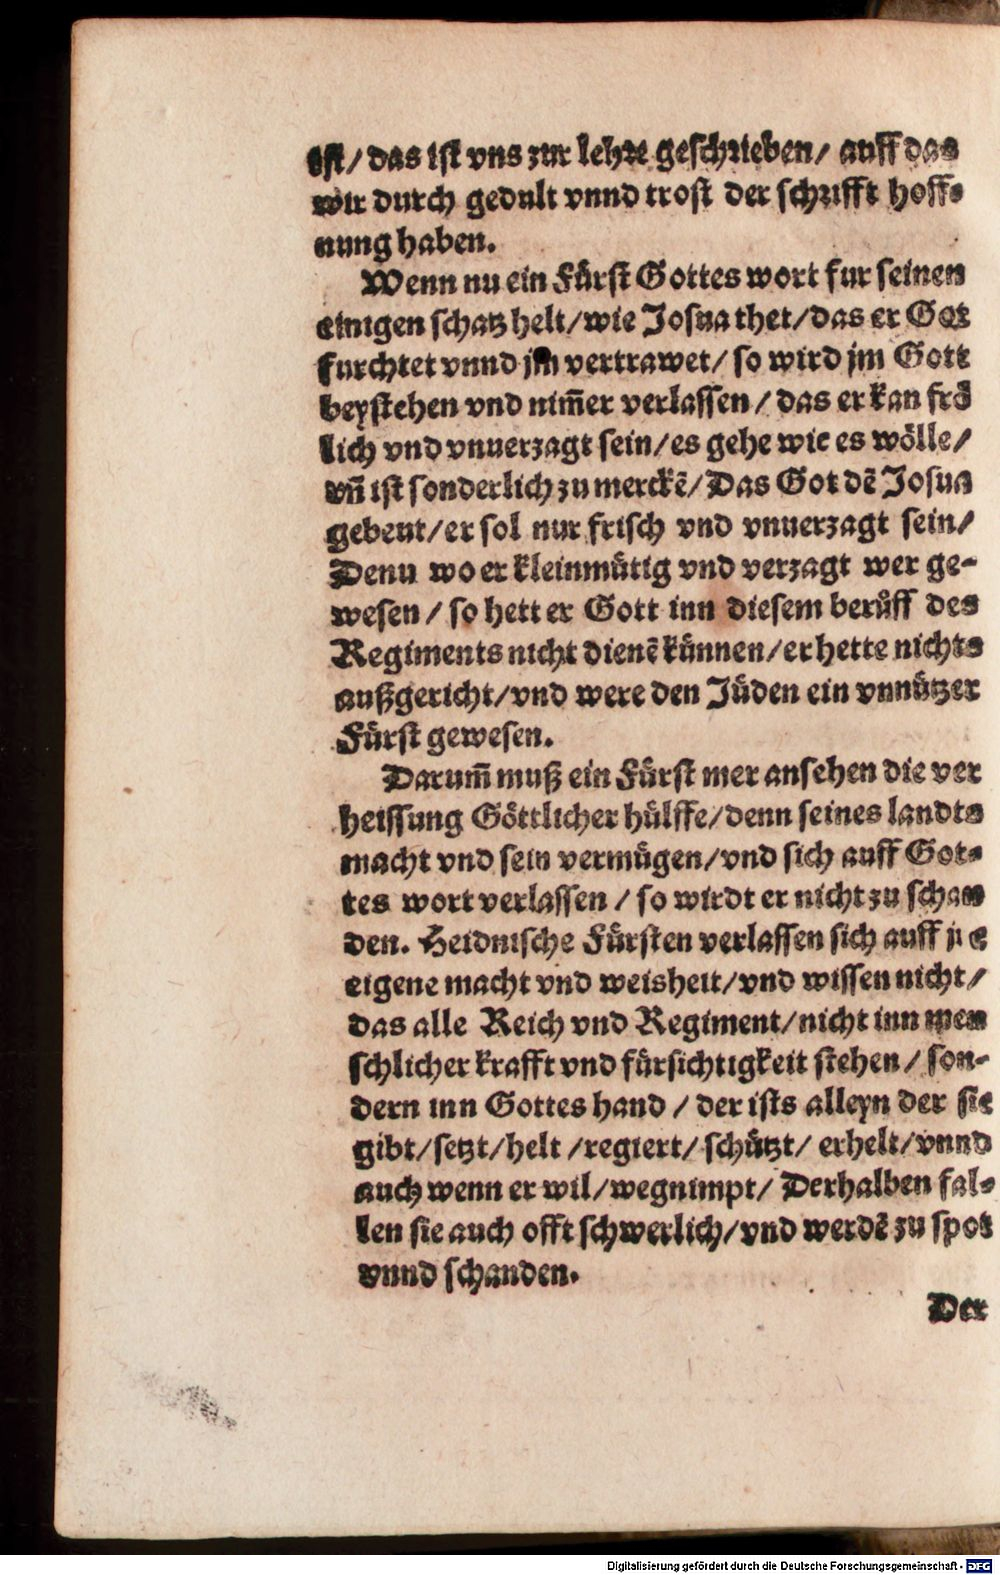 ist/ das ist vns zur lehre geschrieben/ auff das
wir durch gedult vnnd trost der schrifft hoff-
nung haben.
Wenn nu ein Fürst Gottes wort fur seinen
einigen schatz helt/ wie Josua thet/ das er Got
furchtet vnnd jm vertrawet/ so wird jm Gott
beystehen vnd nim̃er verlassen/ das er kan frö
lich vnd vnuerzagt sein/ es gehe wie es wölle/
vñ ist sonderlich zu merckẽ/ Das Got dẽ Josua
gebeut/ er sol nur frisch vnd vnuerzagt sein/
Denn wo er kleinmütig vnd verzagt wer ge-
wesen/ so hett er Gott inn diesem berůff des
Regiments nicht dienẽ künnen/ er hette nichts
außgericht/ vnd were den Jüden ein vnnützer
Fürst gewesen.
Darum̃ muß ein Fürst mer ansehen die ver
heissung Göttlicher hülffe/ denn seines landts
macht vnd sein vermügen/ vnd sich auff Got-
tes wort verlassen/ so wirdt er nicht zu schan
den. Heidnische Fürsten verlassen sich auff jre
eigene macht vnd weisheit/ vnd wissen nicht/
das alle Reich vnd Regiment/ nicht inn men
schlicher krafft vnd fürsichtigkeit stehen/ son-
dern inn Gottes hand/ der ists alleyn der sie
gibt/ setzt/ helt/ regiert/ schützt/ erhelt/ vnnd
auch wenn er wil/ wegnimpt/ Derhalben fal-
len sie auch offt schwerlich/ vnd werdẽ zu spot
vnnd schanden.
Der
Digitalisierung gefördert durch die Deutsche Forschungsgemeinschaft - DFG